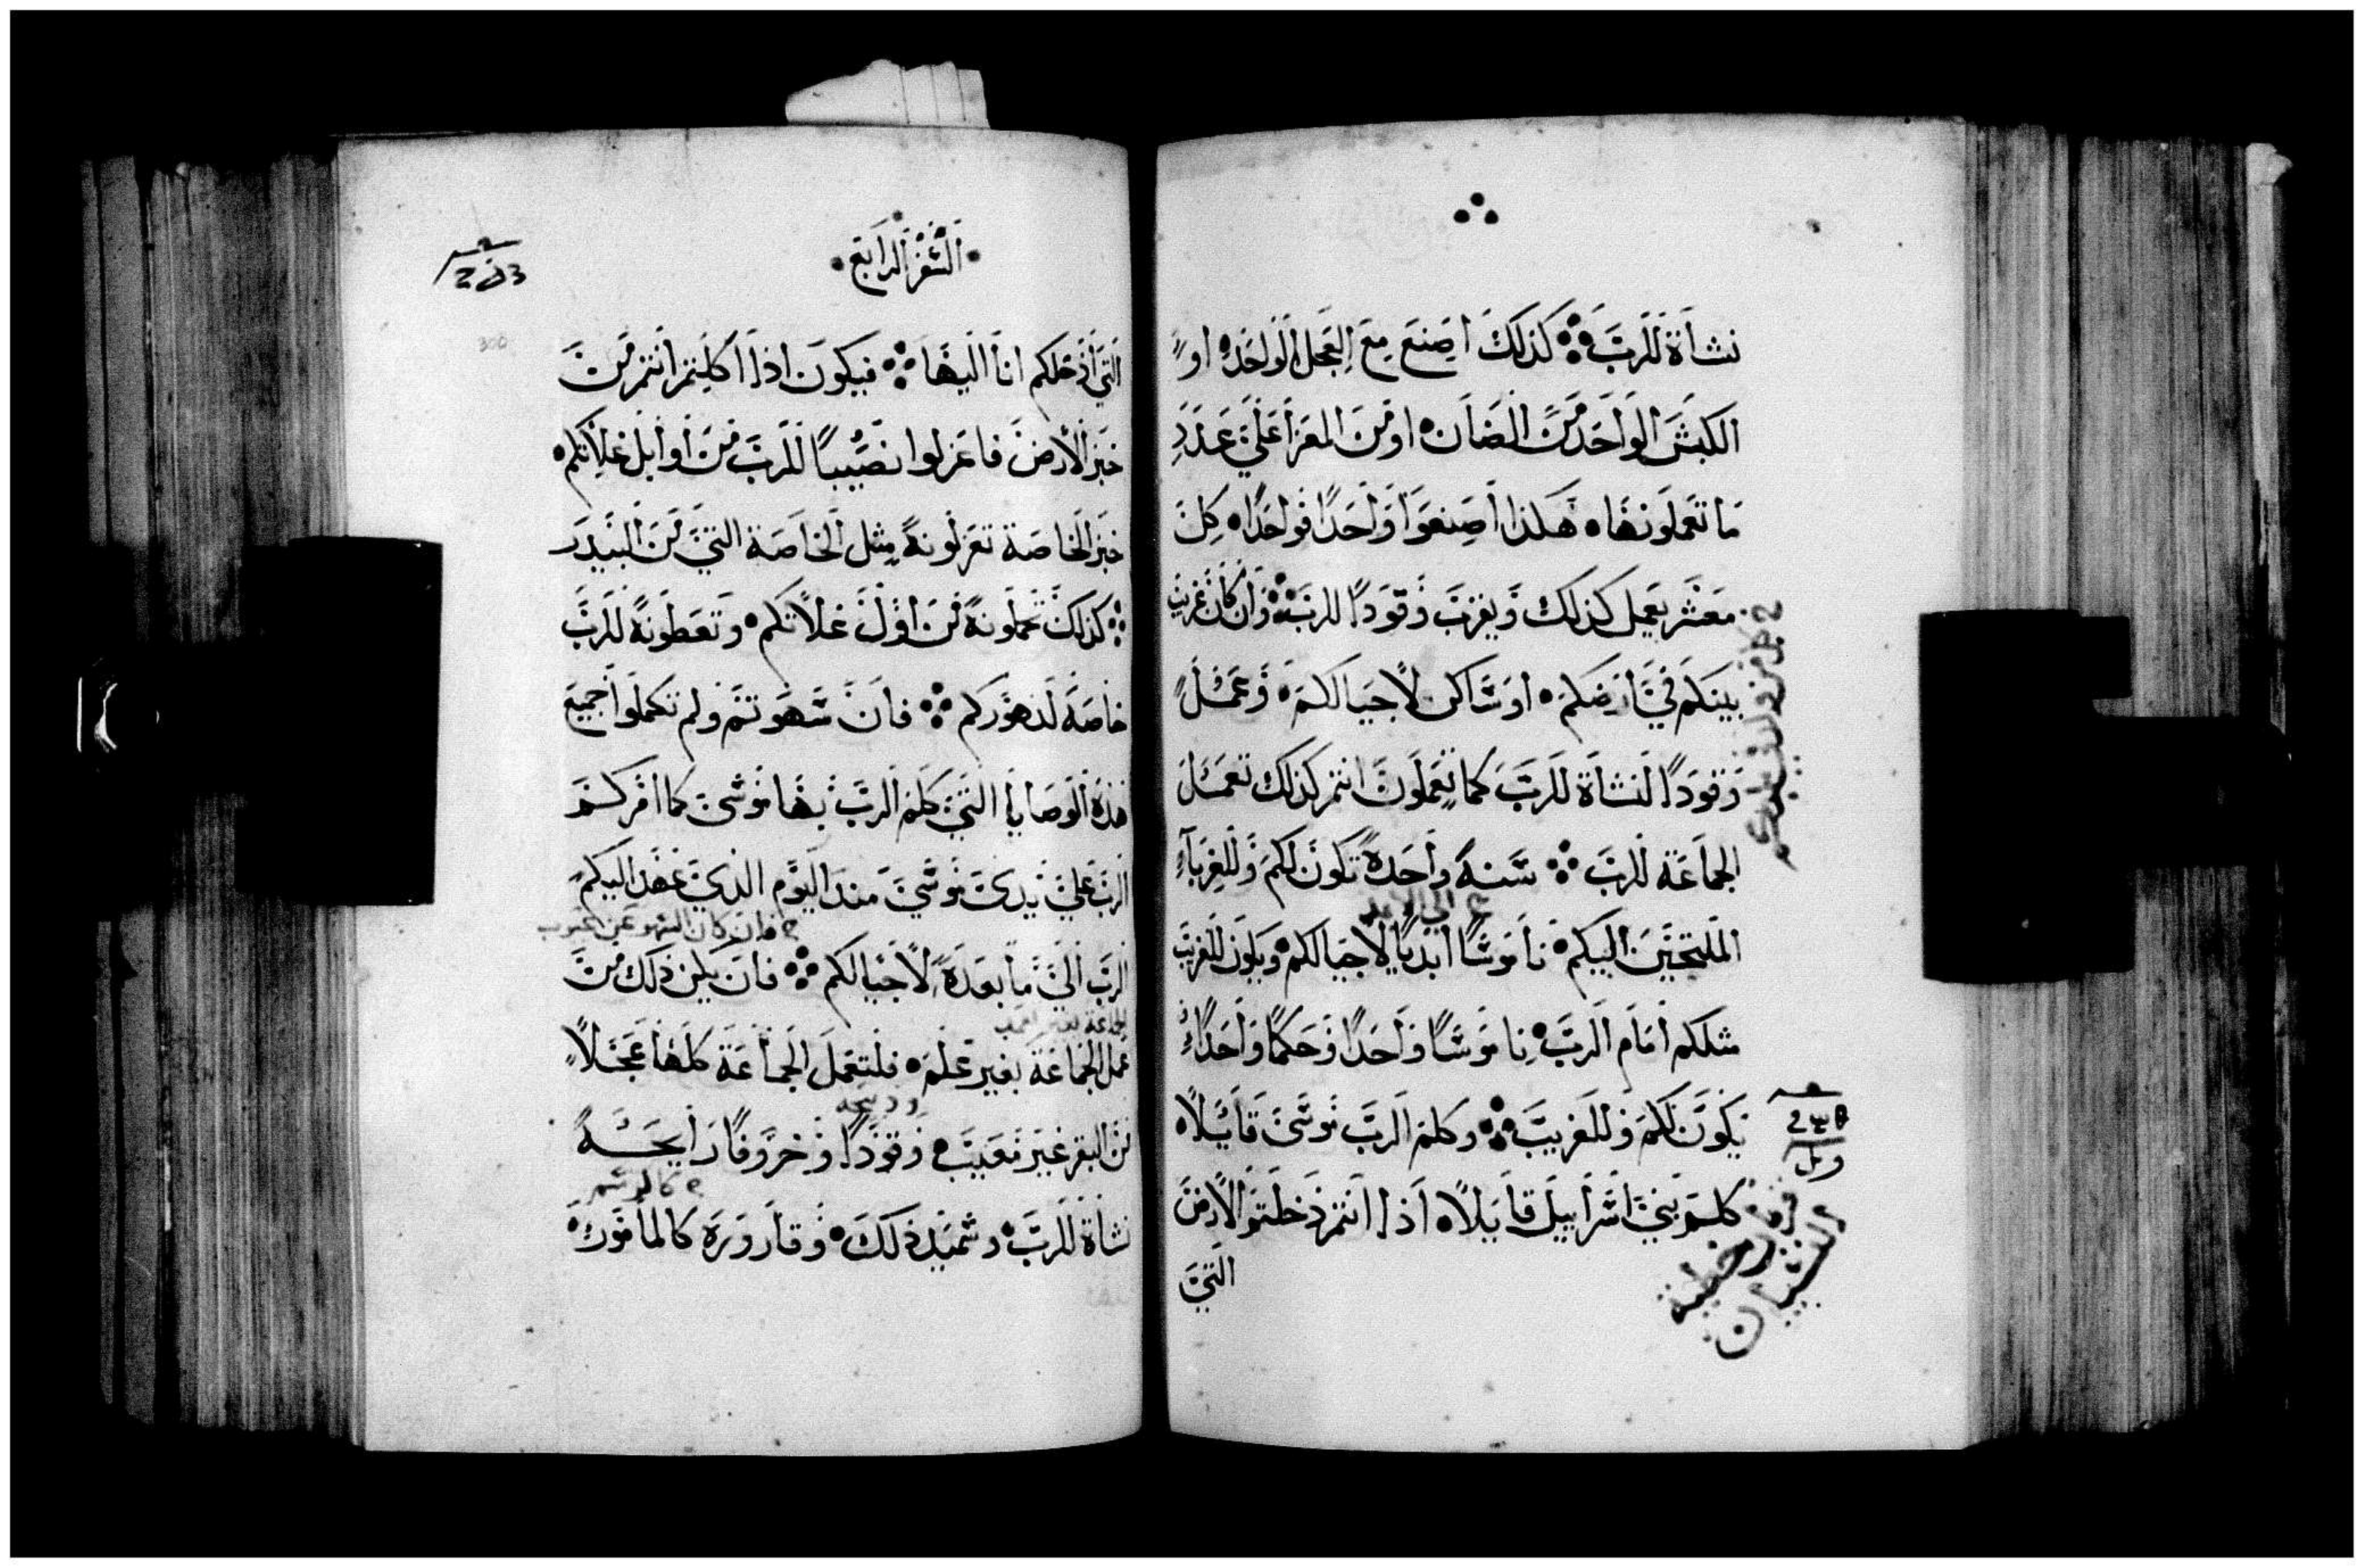 نشاة للرب ⁘ كذلك اصنع مع العجل الواحد • او
الكبش الواحد من الضان • او من المعز اعلي عدد
ما تعملونها • هكذا اصنعوا واحدا فواحدا • كل
معشر يعمل كذلك ويقرب وقودا للرب ⁘ وان كان غريب
بينكم في ارضكم • او ساكن لاجيالكم • وعمل
وقودا لنشاة للرب كما تعملون انتم كذلك تعمل
الجماعة للرب ⁘ سنة واحدة تكون لكم وللغرباء
الي الابد
الملتجيين اليكم • ناموسا ابديا لاجيالكم • ويكون للغريب
مثلكم امام الرب • ناموسا واحدا وحكما واحدا
يكون لكم وللغريب ⁘ وكلم الرب موسى قايلا •
كلم بني اسراييل قايلا • اذا انتم دخلتم الارض
التي
السفر الرابع
التي ادخلكم انا اليها ⁘ فيكون اذا اكلتم انتم من
خبز الارض فاعزلوا نصيبا للرب من اوايل غلاتكم •
خبز الخاصة تعزلونه مثل الخاصة التي من البيدر
⁘ كذلك تعملونه من اول غلاتكم • وتعطونه للرب
خاصة لدهوركم ⁘ فان سهوتم ولم تكملوا جميع
هذه الوصايا التي كلم الرب بها موسى كما امركم
الرب علي يدي موسي منذ اليوم الذي عهد اليكم
فان كان السهو عن
الرب الي ما بعده لاجيالكم ⁘ فان يكن ذلك من
عمل الجماعة بغير علم • فلتعمل الجماعة كلها عجلا
من البقر غير معيب • وقودا وخروفا رايحة
كالرسم
نشاة للرب • وسميد ذلك • وقارورة كالمامور •